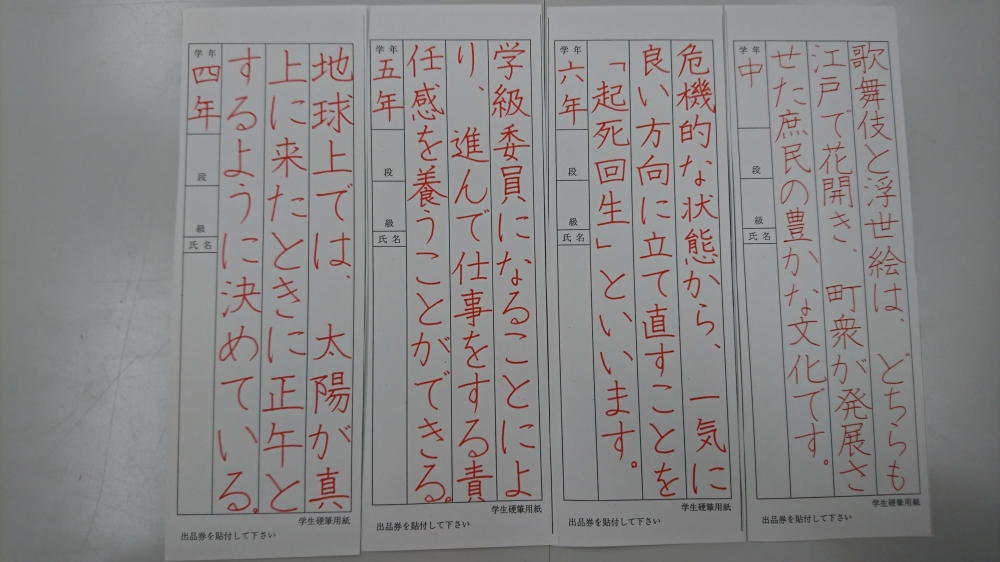 歌舞伎と浮世絵は、どちらも
江戸で花開き、町衆が発展さ
せた庶民の豊かな文化です。
学年
中
段
級
氏名
学生硬筆用紙
出品券を貼付して下さい
危機的な状態から、一気に
良い方向に立て直すことを
「起死回生」といいます。
学年
六年
段
級
氏名
学生硬筆用紙
出品券を貼付して下さい
学級委員になることによ
り、進んで仕事をする責
任感を養うことができる。
学年
五年
段
級
氏名
学生硬筆用紙
出品券を貼付して下さい
地球上では、太陽が真
上に来たときに正午と
するように決めている。
学年
四年
段
級
氏名
学生硬筆用紙
出品券を貼付して下さい